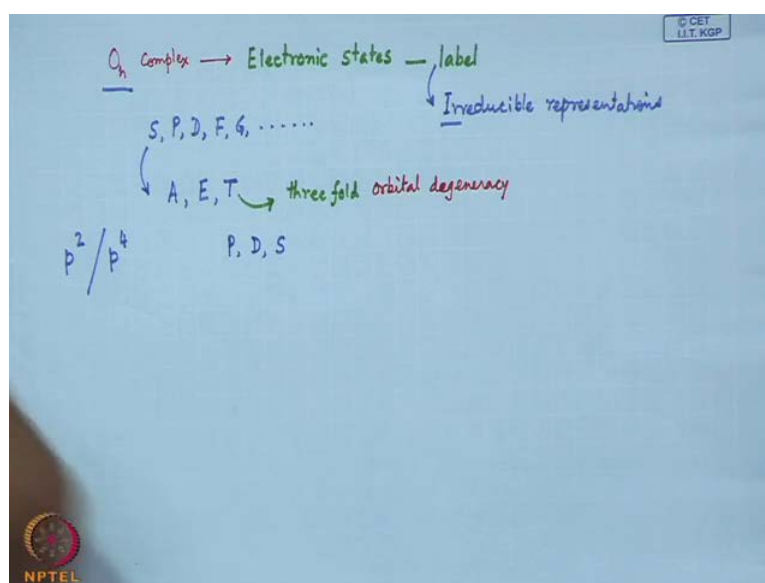 © CET
I.I.T. KGP
Oh Complex → Electronic states — label
Irreducible representations
S, P, D, F, G, ......
A, E, T → three fold orbital degeneracy
p²/p⁴ P, D, S
NPTEL